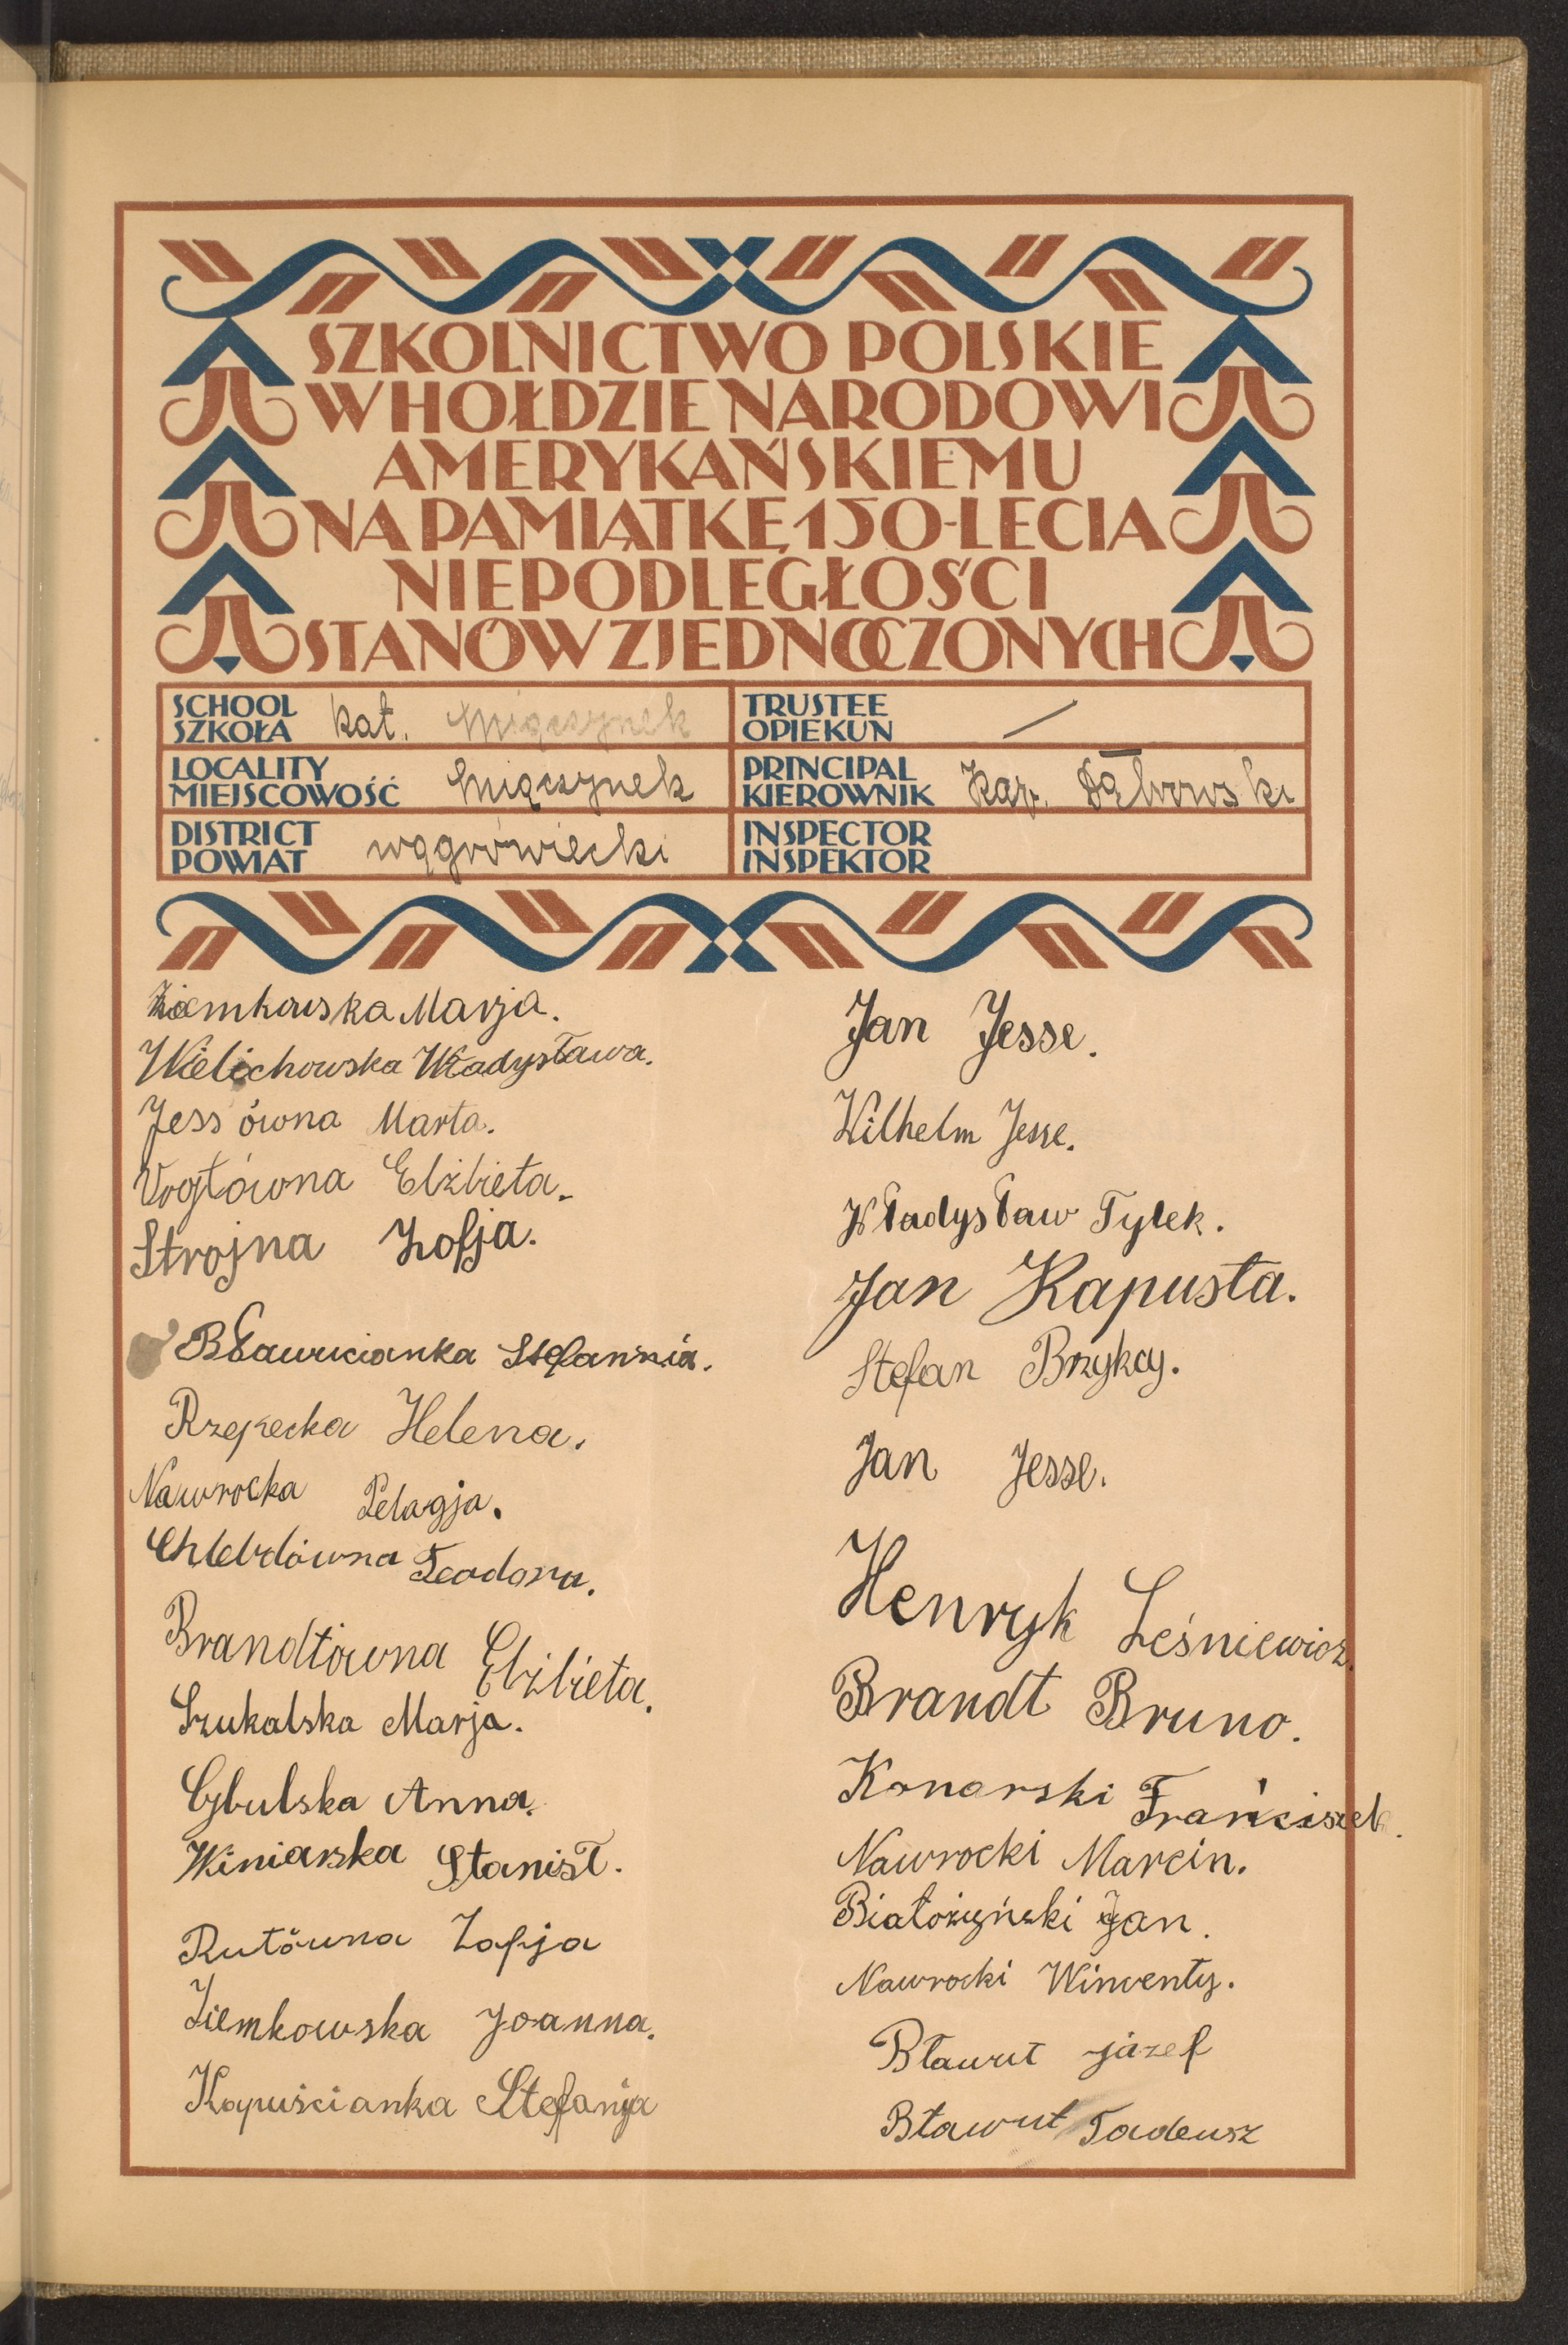 SZKOLNICTWO POLSKIE
W HOŁDZIE NARODOWI
AMERYKAŃSKIEMU
NA PAMIĄTKĘ 150-LECIA
NIEPODLEGŁOŚCI
STANÓW ZJEDNOCZONYCH
SCHOOL
SZKOŁA kat. Miączynek
TRUSTEE
OPIEKUN /
LOCALITY
MIEJSCOWOŚĆ Miączynek
PRINCIPAL
KIEROWNIK Kaz. Dąbrowski
DISTRICT
POWIAT wągrowiecki
INSPECTOR
INSPEKTOR
Ziemkowska Marja.
Wielichowska Władysława.
Jessówna Marta.
Vogtówna Elżbieta.
Strojna Zofja.
Bławucianka Stefannia.
Rzepecka Helena.
Nawrocka Pelagja.
Chlebdówna Teodora.
Brandtówna Elżbieta.
Szukalska Marja.
Cybulska Anna.
Winiarska Stanisł.
Rutówna Zofja
Ziemkowska Joanna.
Kapuścianka Stefanja
Jan Jesse.
Wilhelm Jesse.
Władysław Tylek.
Jan Kapusta.
Stefan Brzykcy.
Jan Jesse.
Henryk Leśniewicz.
Brandt Bruno.
Konarski Franciszek.
Nawrocki Marcin.
Białożyński Jan.
Nawrocki Winventy.
Bławut józef
Bławut Tadeusz